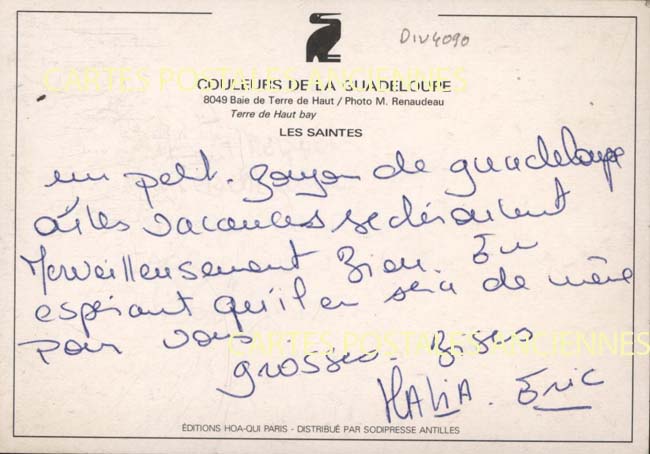 DIV4090
CARTES POSTALES ANCIENNES
COULEURS DE LA GUADELOUPE
8049 Baie de Terre de Haut / Photo M. Renaudeau
Terre de Haut bay
LES SAINTES
un petit de guadeloupe
où les vacances se déroulent
Merveilleusement Bien. En
espérant qu'il en sera de même
pour vous
CARTES POSTALES ANCIENNES
grosses Bises
Eric
ÉDITIONS HOA-QUI PARIS - DISTRIBUÉ PAR SODIPRESSE ANTILLES